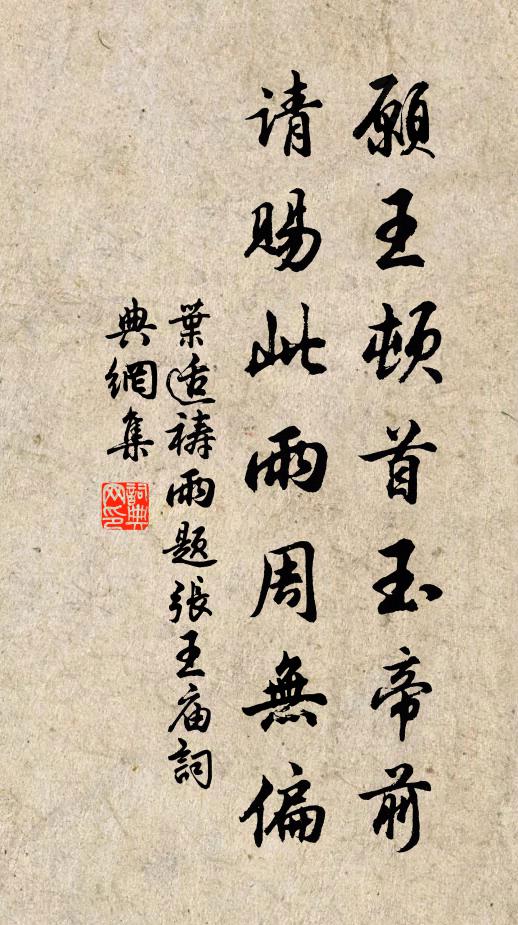 願王頓首玉帝前
请賜此雨周無偏
葉适禱雨題張王庙詞
典網集
詞典
网印